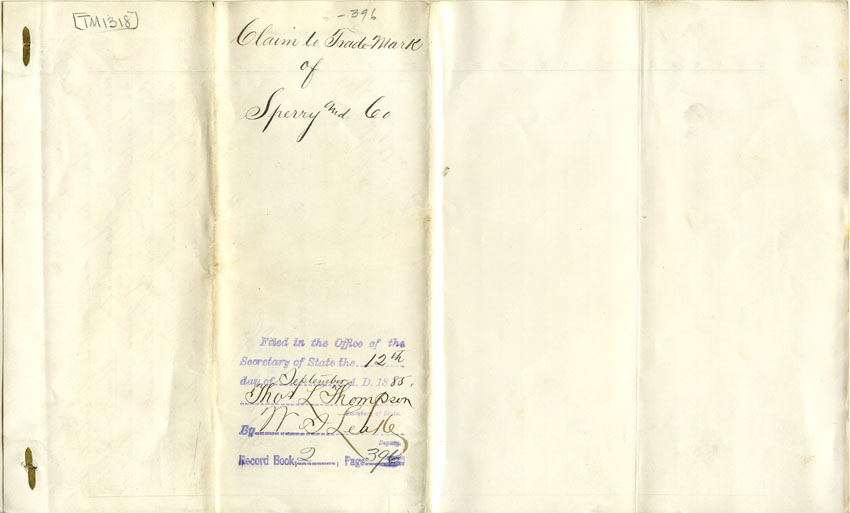 [TM1318]
-396
Claim to Trade Mark
of
Sperry and Co
Filed in the Office of the
Secretary of State the 12th
day of September A. D. 1885.
Thos L Thompson
Secretary of State.
By W. J. Leake
Deputy.
Record Book, 2, Page 396